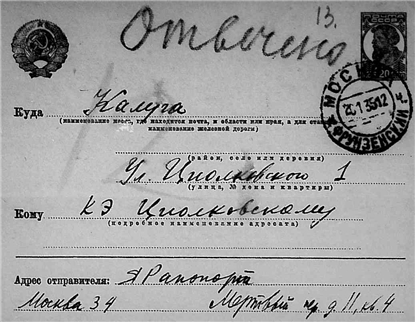 13.
Отвечено
20
МОСКВА
26.1.35.12
ФРУНЗЕНСКИЙ
Куда Калуга
(наименование места, где находится почта, и области или края, а для
наименование железной дороги)
(район, село или деревня)
Ул. Циолковского 1
(улица, № дома и квартиры)
Кому КЭ Циолковскому
(подробное наименование адресата)
Адрес отправителя: Я Рапопорт
Москва 34 Мертвый пр д 11, кв 4